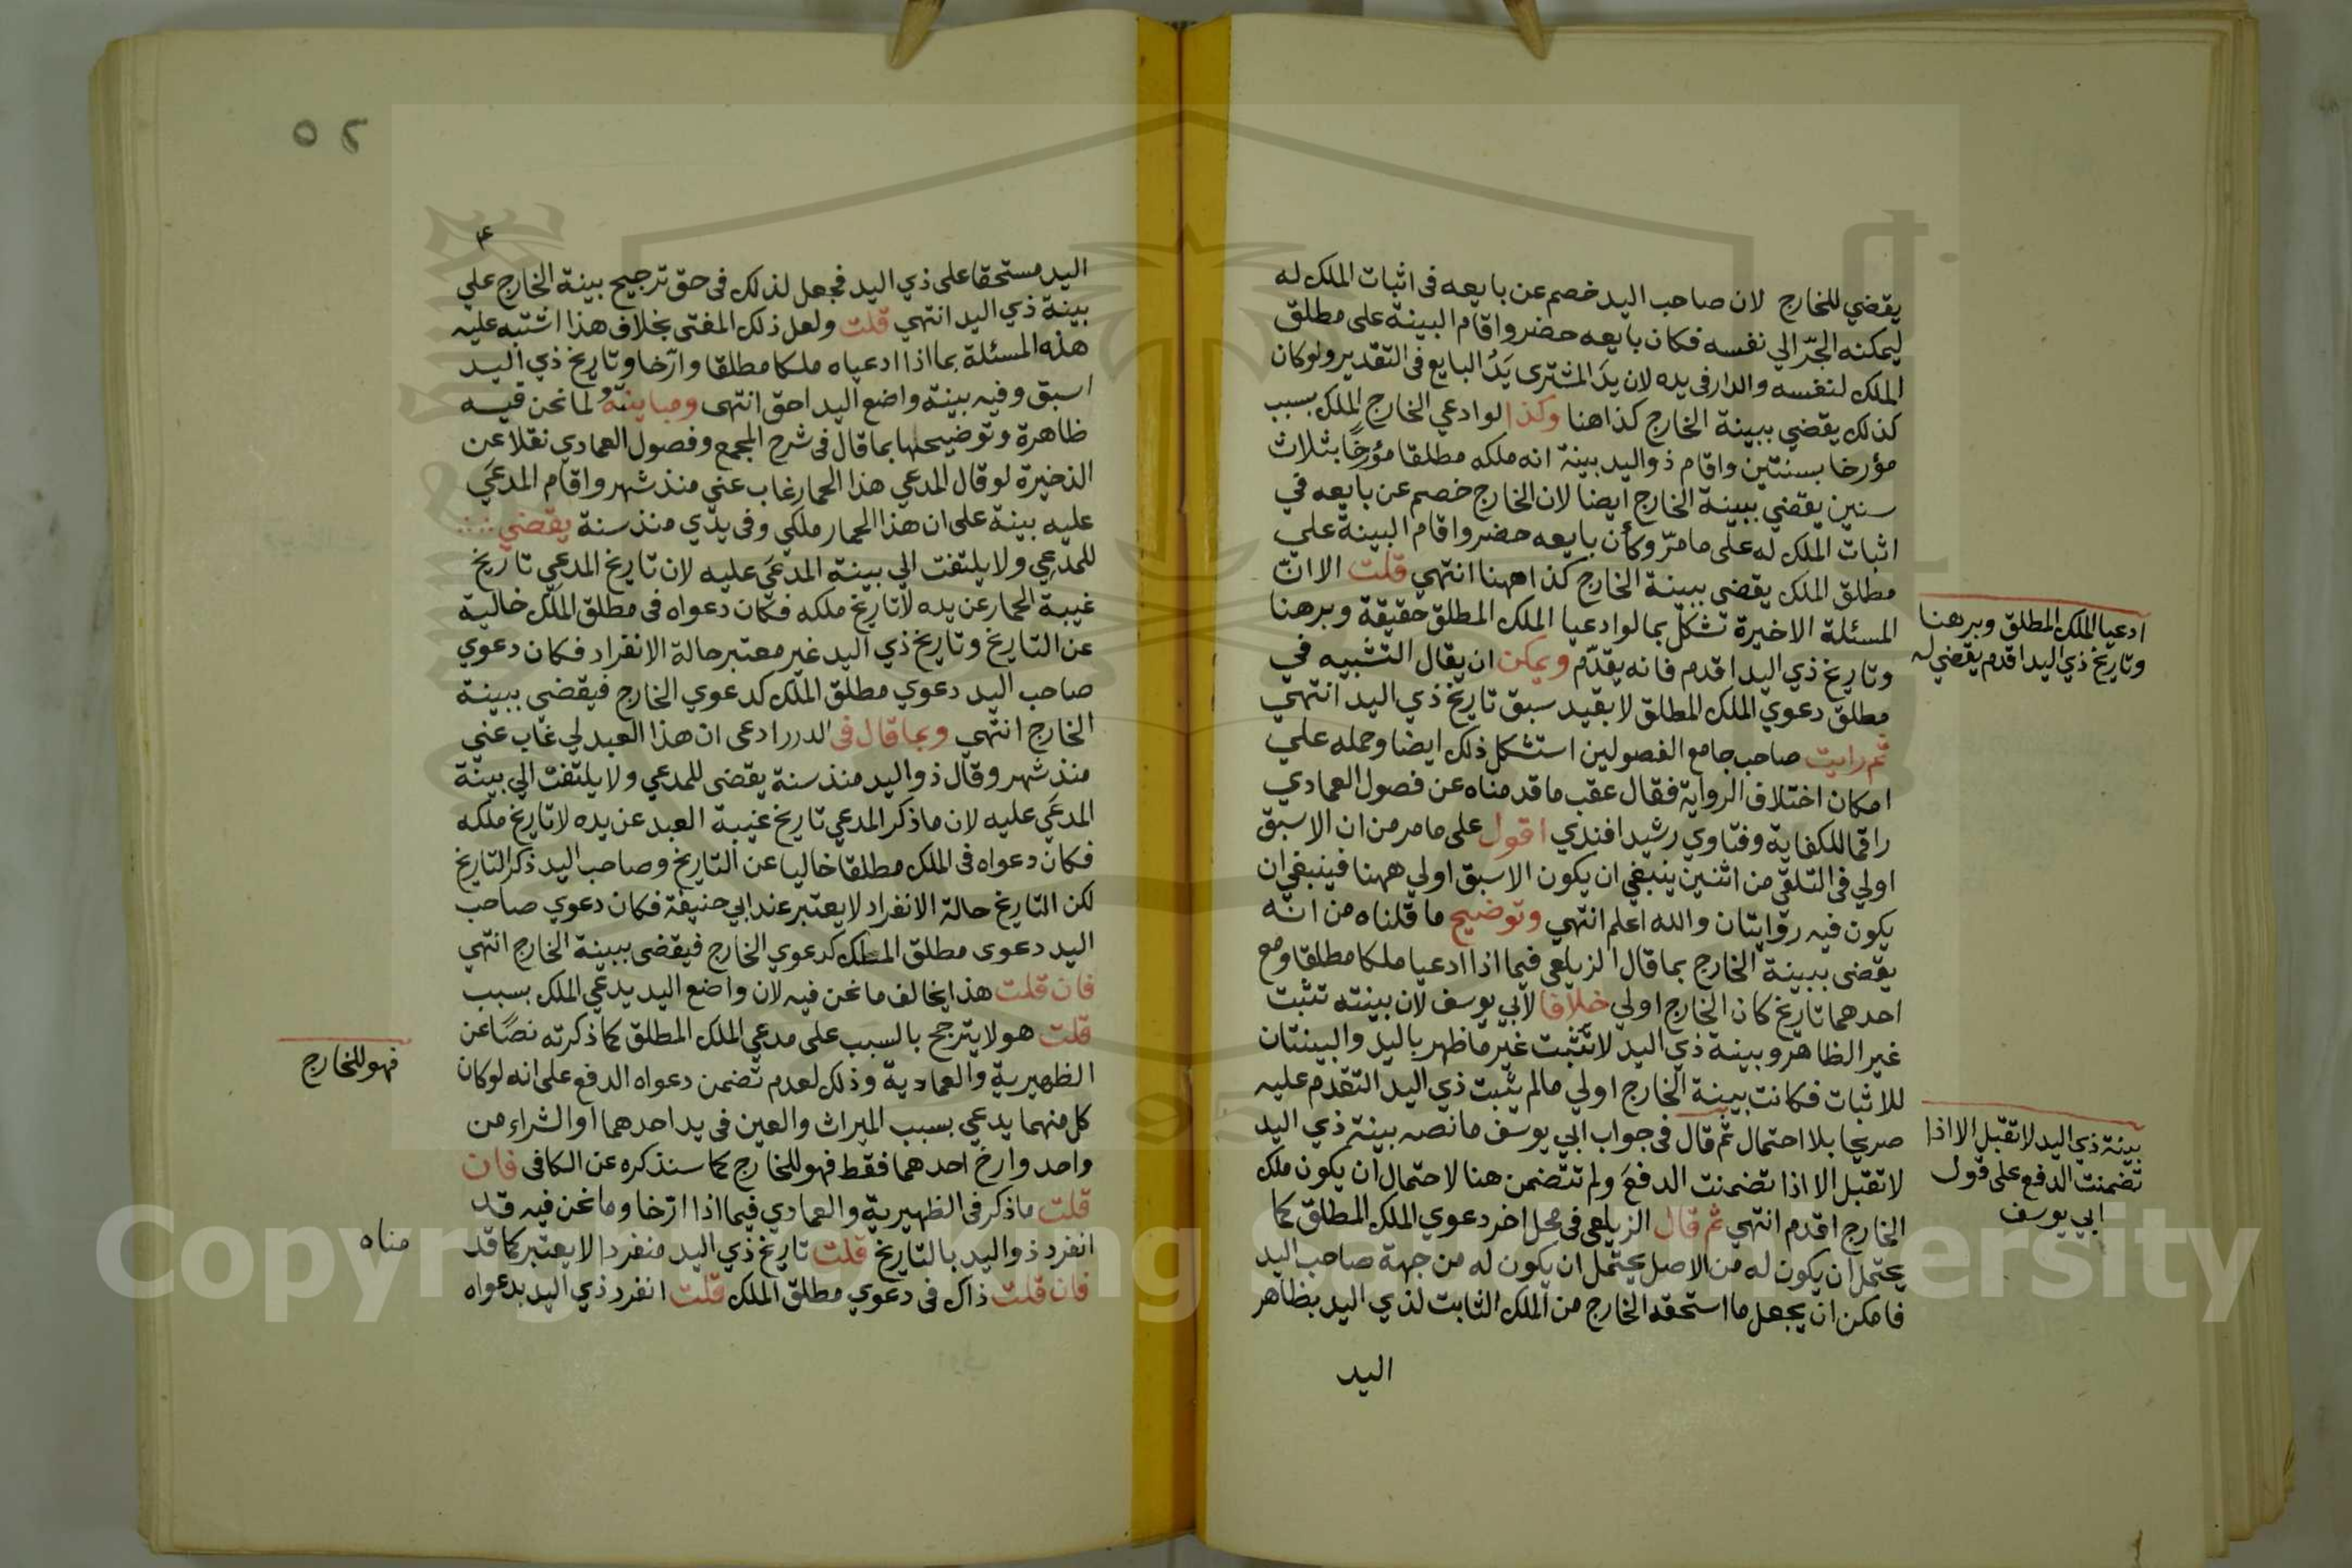 يقضي للخارج لان صاحب اليد خصم عن بايعه فى اثبات الملك له
ليمكنه الجرّ الي نفسه فكان بايعه حضر واقام البينة على مطلق
الملك لنفسه والدار فى يده لان يدَ المشترى يَدُ البايع فى التقدير ولو كان
كذلك يقضي ببينة الخارج كذا هنا وكذا لو ادعي الخارج الملك بسبب
مؤرخا بسنتين واقام ذو اليد بينة انه ملكه مطلقا مؤرخًا بثلاث
سنين يقضي ببينة الخارج ايضا لان الخارج خصم عن بايعه في
اثبات الملك له على ما مرّ وكأن بايعه حضر واقام البينة علي
مطلق الملك يقضى ببينة الخارج كذا ههنا انتهي قلت الا انّ
المسئلة الاخيرة تشكل بما لو ادعيا الملك المطلق حقيقة وبرهنا
وتاريخ ذي اليد اقدم فانه يقدّم ويمكن ان يقال التشبيه في
مطلق دعوي الملك المطلق لا بقيد سبق تاريخ ذي اليد انتهي
ثم رايت صاحب جامع الفصولين استشكل ذلك ايضا وحمله علي
امكان اختلاف الرواية فقال عقب ما قدمناه عن فصول العمادي
راقما للكفاية وفتاوي رشيد افندي اقول على ما مر من ان الاسبق
اولي فى التلقي من اثنين ينبغي ان يكون الاسبق اولي ههنا فينبغي ان
يكون فيه روايتان والله اعلم انتهي وتوضيح ما قلناه من انّه
يقضى ببينة الخارج بما قال الزيلعي فيما اذا ادعيا ملكا مطلقا ومع
احدهما تاريخ كان الخارج اولي خلافا لابي يوسف لان بينته تثبت
غير الظاهر وبينة ذي اليد لا تثبت غير ما ظهر باليد والبينتان
للاثبات فكانت بينة الخارج اولي ما لم يثبت ذي اليد التقدم عليه
صريحا بلا احتمال ثم قال فى جواب ابي يوسف ما نصه بينة ذي اليد
لا تقبل الا اذا تضمنت الدفعَ ولم تتضمن هنا لاحتمال ان يكون ملك
الخارج اقدم انتهي ثم قال الزيلعى فى محل اخر دعوي الملك المطلق كما
يحتمل ان يكون له من الاصل يحتمل ان يكون له من جهة صاحب اليد
فامكن ان يجعل ما استحقه الخارج من الملك الثابت لذي اليد بظاهر
اليد
ادعيا الملك المطلق وبرهنا
وتاريخ ذي اليد اقدم يقضي له
بينة ذي اليد لا تقبل الا اذا
تضمنت الدفع على قول
ابي يوسف
٥٢
اليد مستحقا على ذي اليد فجعل لذلك فى حق ترجيح بينة الخارج علي
بينة ذي اليد انتهي قلت ولعل ذلك المفتى بخلاف هذا اشتبه عليه
هذه المسئلة بما اذا ادعياه ملكا مطلقا وارّخا وتاريخ ذي اليد
اسبق وفيه بينة واضع اليد احق انتهى ومباينتهُ لما نحن فيه
ظاهرة وتوضيحها بما قال فى شرح المجمع وفصول العمادي نقلا عن
الذخيرة لو قال المدعي هذا الحمار غاب عني منذ شهر واقام المدعَي
عليه بينة على ان هذا الحمار ملكي وفى يدي منذ سنة يقضي
للمدعِي ولا يلتفت الي بينة المدعَي عليه لان تاريخ المدعي تاريخ
غيبة الحمار عن يده لا تاريخ ملكه فكان دعواه فى مطلق الملك خالية
عن التاريخ وتاريخ ذي اليد غير معتبر حالة الانفراد فكان دعوي
صاحب اليد دعوي مطلق الملك كدعوي الخارج فيقضي ببينة
الخارج انتهي وبما قال فى الدرر ادعى ان هذا العبد لي غاب عني
منذ شهر وقال ذو اليد منذ سنة يقضى للمدعي ولا يلتفت الي بينة
المدعَي عليه لان ما ذكر المدعي تاريخ غيبة العبد عن يده لا تاريخ ملكه
فكان دعواه فى الملك مطلقا خاليا عن التاريخ وصاحب اليد ذكر التاريخ
لكن التاريخ حالة الانفراد لا يعتبر عند ابي حنيفة فكان دعوي صاحب
اليد دعوى مطلق الملك كدعوي الخارج فيقضى ببينة الخارج انتهي
فان قلت هذا يخالف ما نحن فيه لان واضع اليد يدعي الملك بسبب
قلت هو لا يترجح بالسبب على مدعي الملك المطلق كما ذكرته نصًا عن
الظهيرية والعمادية وذلك لعدم تضمن دعواه الدفع على انه لو كان
كل منهما يدعي بسبب الميراث والعين فى يد احدهما او الشراء من
واحد وارخ احدهما فقط فهو للخارج كما سنذكره عن الكافى فان
قلت ما ذكر فى الظهيرية والعمادي فيما اذا ارّخا وما نحن فيه قد
انفرد ذو اليد بالتاريخ قلت تاريخ ذي اليد منفردا لا يعتبر كما قد
مناه
فان قلت ذاك فى دعوي مطلق الملك قلت انفرد ذي اليد بدعواه
فهو للخارج
Copyright © King Saud University